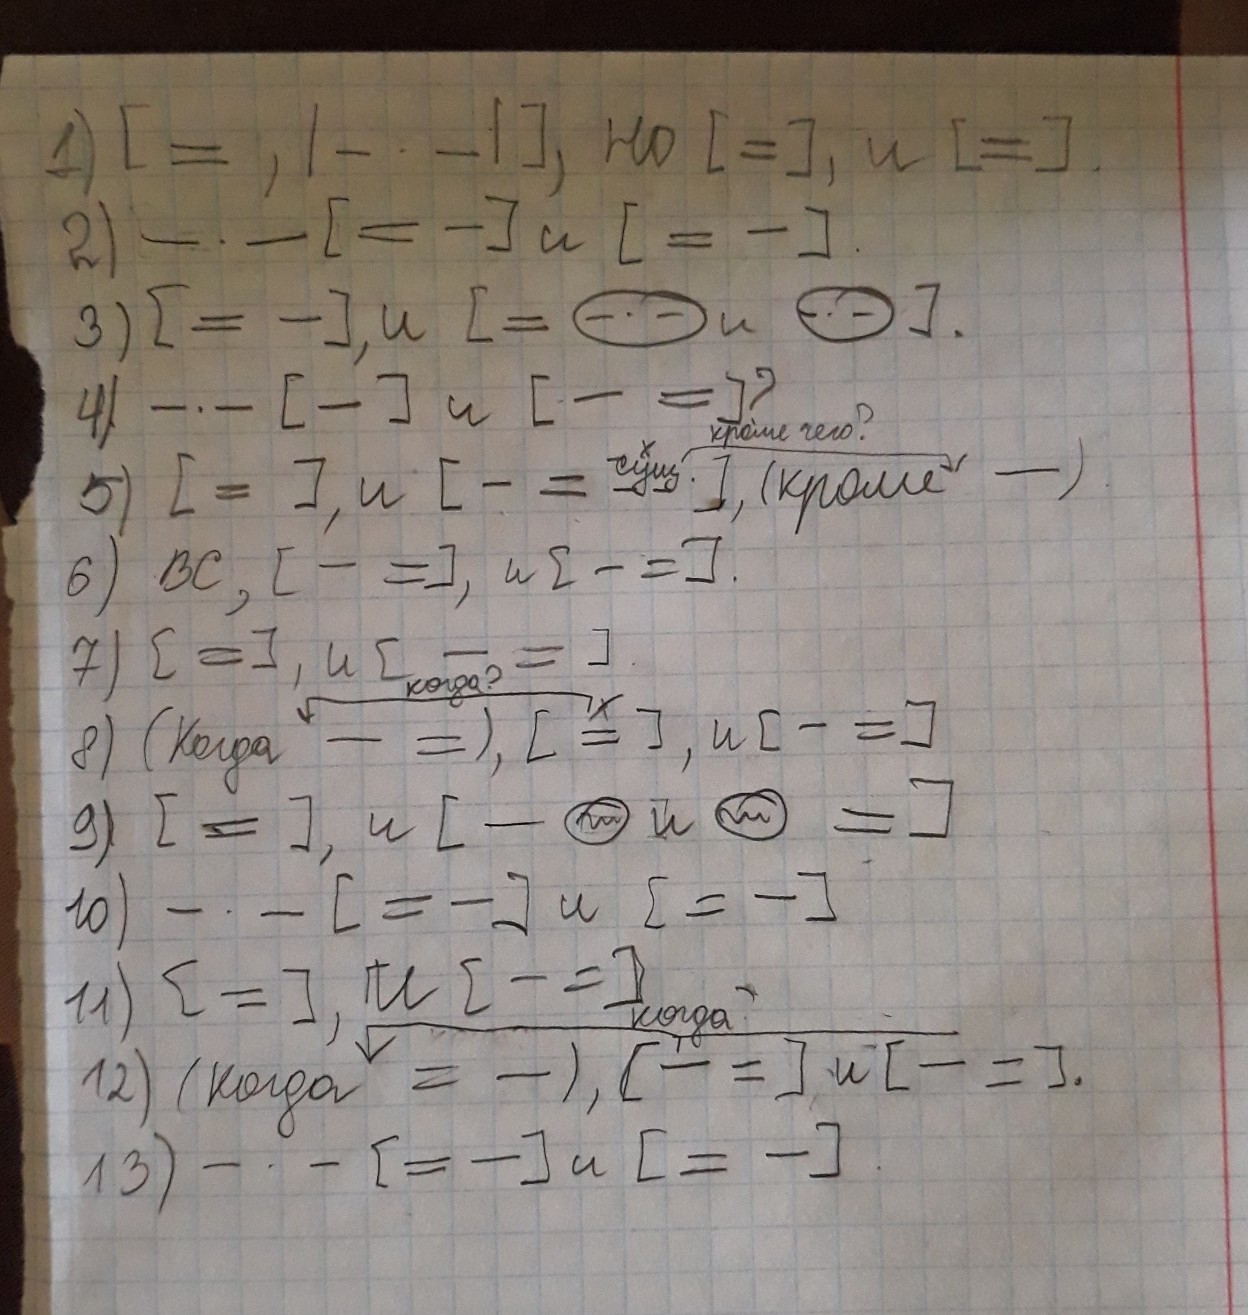 1) [ = , | - · - | ], но [ = ], и [ = ].
2) - · - [ = - ] и [ = - ].
3) [ = - ], и [ = - · - и - · - ].
4) - · - [ - ] и [ - = ]?
кроме чего?
5) [ = ], и [ - = сущ. ], (кроме - )
6) ВС, [ - = ], и [ - = ].
7) [ = ], и [ - = ].
когда?
8) (Когда - = ), [ = ], и [ - = ]
9) [ = ], и [ - ~ и ~ = ]
10) - · - [ = - ] и [ = - ]
11) [ = ], и [ - = ]
когда?
12) (Когда = - ), [ - = ] и [ - = ].
13) - · - [ = - ] и [ = - ].